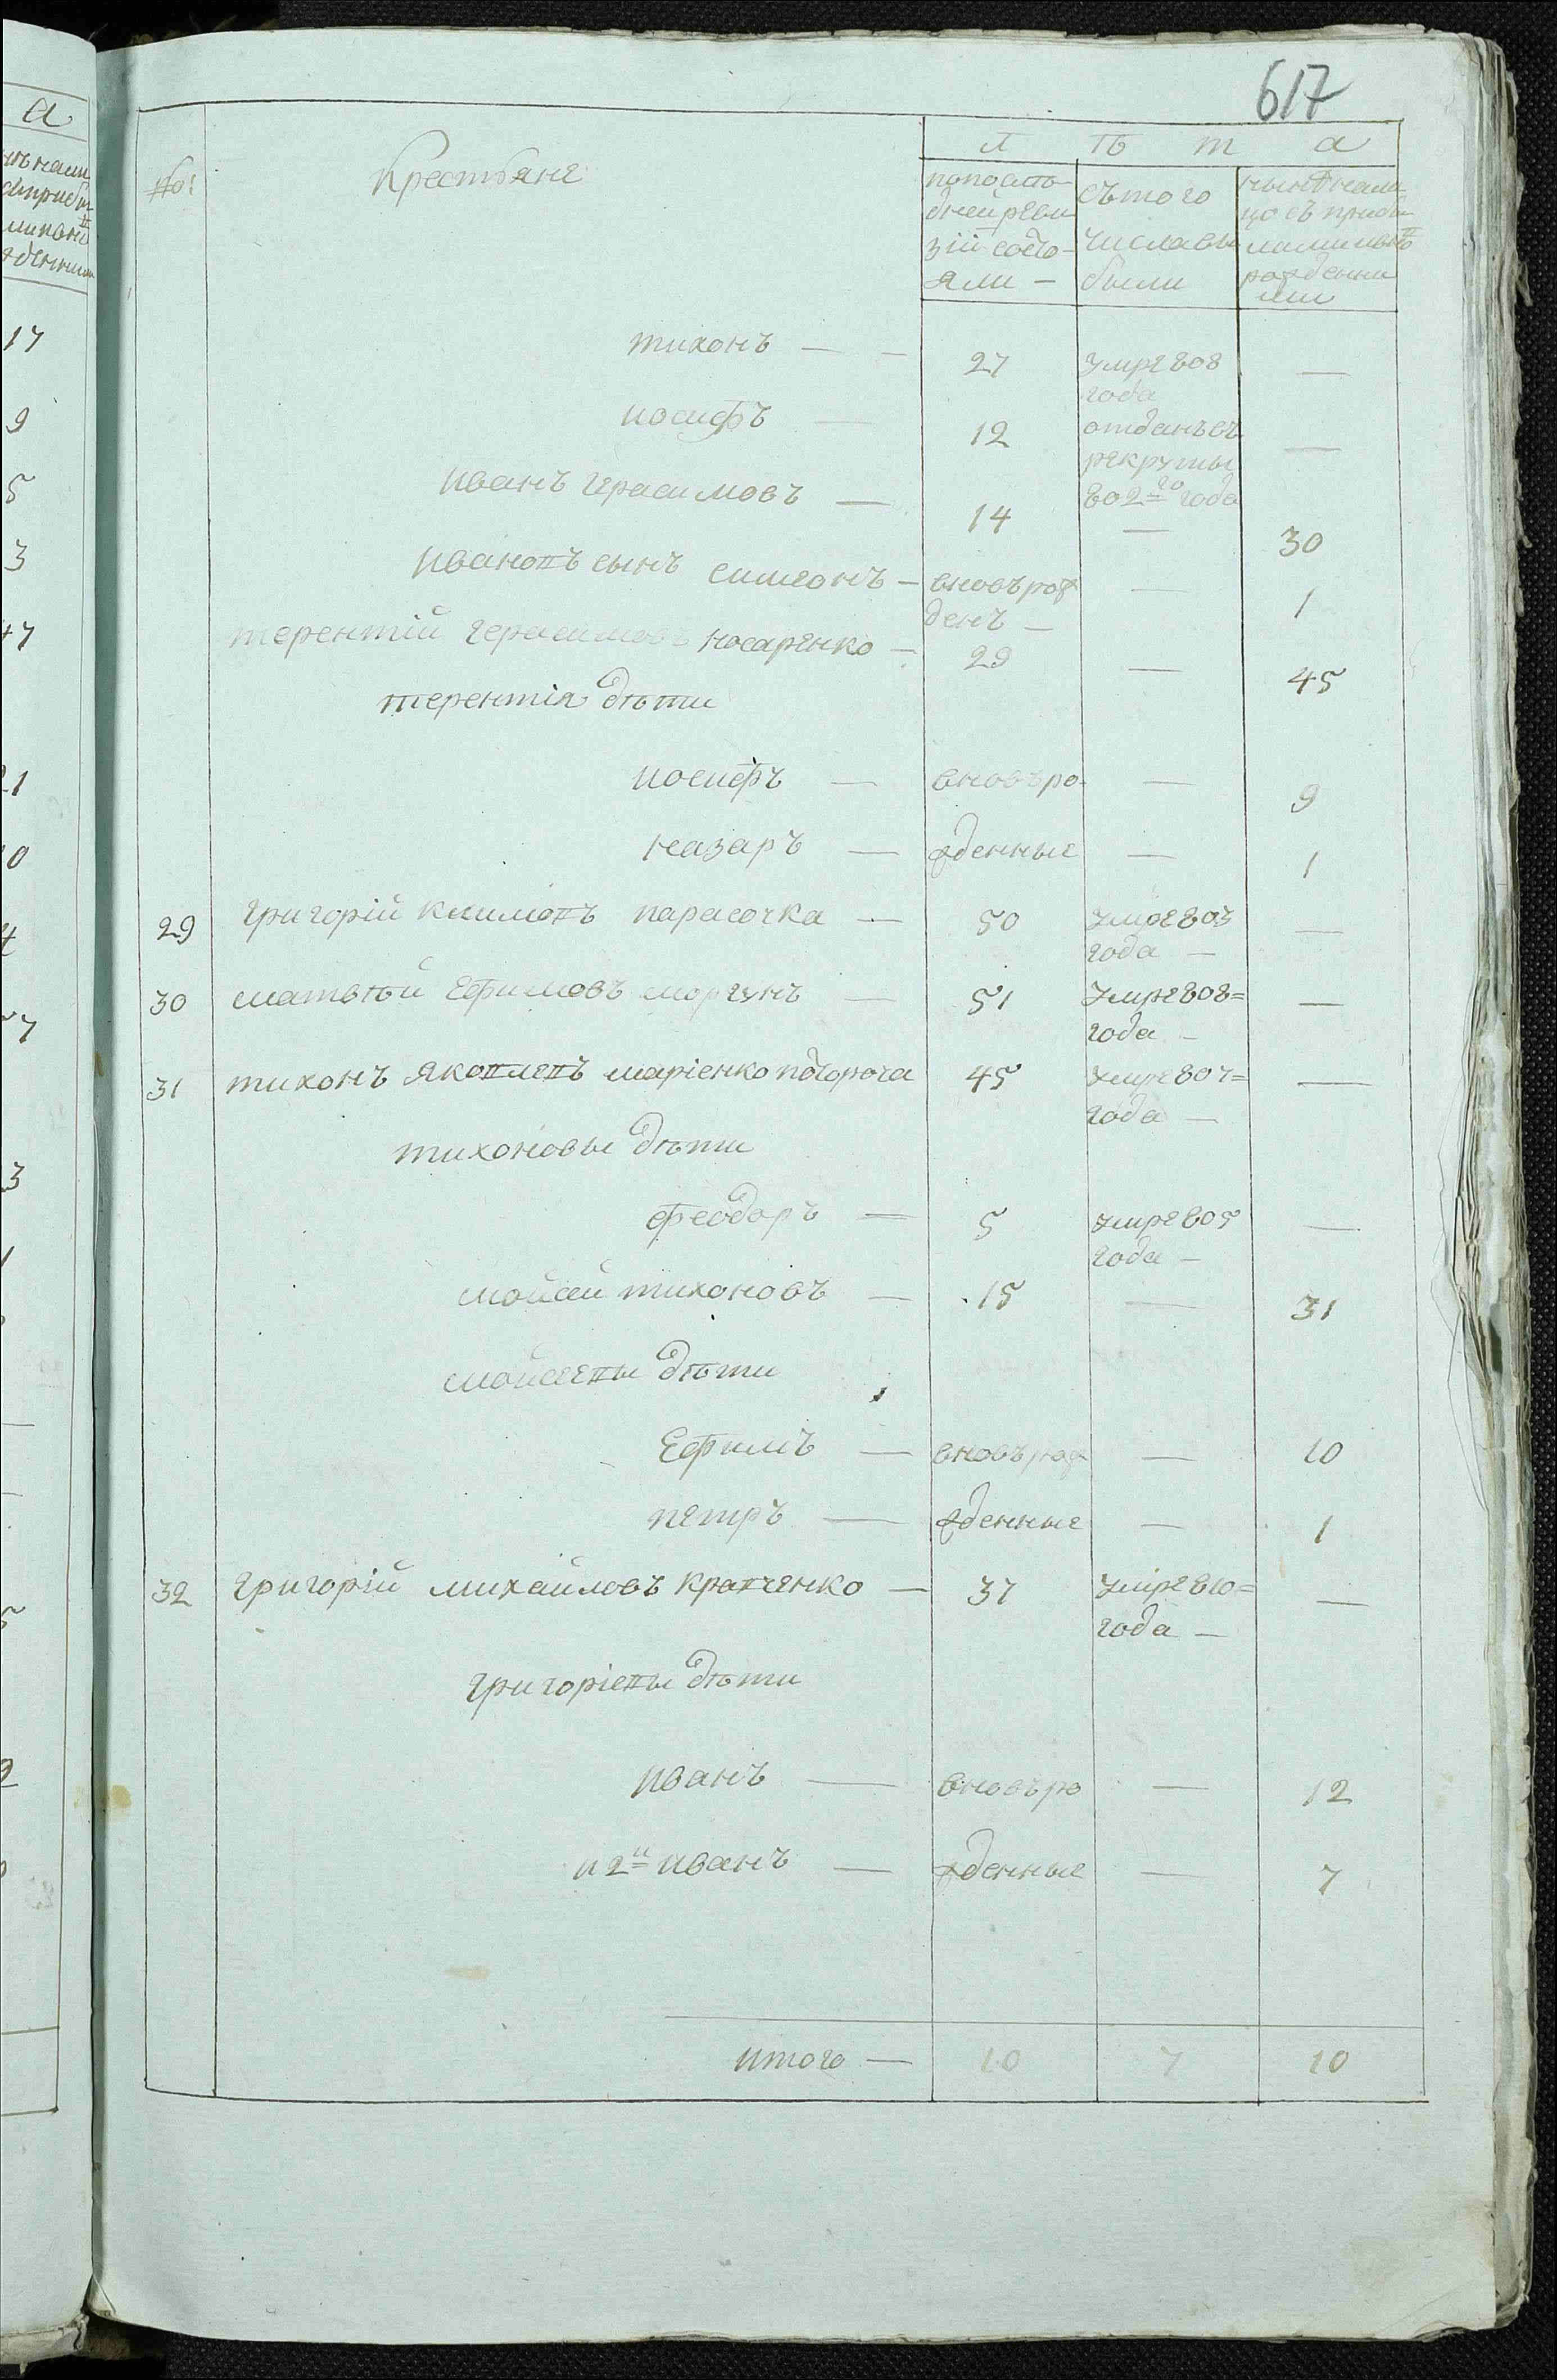 617
№:
Крестьяне
л ѣ т а
по послѣ-
дней реви
зіи состо-
яли —
съ того
числа вы
были
нынѣ нали
цо съ прибы
лыми и вновь
рожденны
ми
тихонъ — — 27 умре 808 —
года
иосифъ — 12 отданъ въ —
рекруты
802го года
иванъ герасимовъ — 14 — 30
ивановъ сынъ симеонъ — вновь рож — 1
денъ —
терентій герасимовъ носаренко — 29 — 45
терентія дѣти
иосифъ — вновь ро- — 9
назаръ — жденные — 1
29 григорій климовъ парасочка — 50 умре 803 —
года —
30 матвѣй Ефимовъ моргунъ — 51 умре 808= —
года —
31 тихонъ яковлевъ маріенко подгороча 45 умре 807= —
года —
тихоновы дѣти
феодоръ — 5 умре 805 —
года —
мойсей тихоновъ — 15 — 31
мойсеевы дѣти
Ефимъ — вновь рож — 10
петръ — жденные — 1
32 григорій михайловъ кравченко — 37 умре 810= —
года —
григоріевы дѣти
иванъ — вновь ро — 12
и 2й иванъ — жденные — 7
итого — 10 7 10
а
17
9
5
3
47
21
10
4
57
3
1